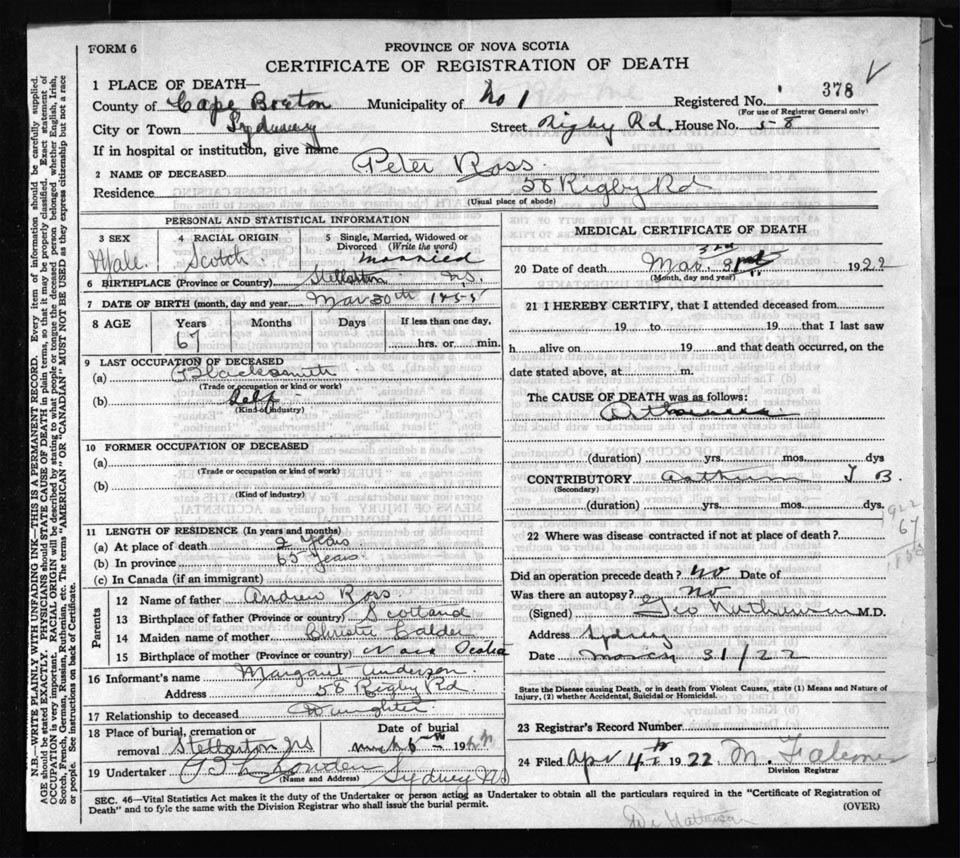 FORM 6
PROVINCE OF NOVA SCOTIA
CERTIFICATE OF REGISTRATION OF DEATH
1 PLACE OF DEATH—
County of Cape Breton Municipality of No 1 Registered No. 378
(For use of Registrar General only)
City or Town Sydney Street Rigby Rd. House No. 58
If in hospital or institution, give name
2 NAME OF DECEASED Peter Ross
Residence 58 Rigby Rd
(Usual place of abode)
PERSONAL AND STATISTICAL INFORMATION
3 SEX Male.
4 RACIAL ORIGIN Scotch.
5 Single, Married, Widowed or Divorced (Write the word) Married
6 BIRTHPLACE (Province or Country) Stellarton N.S.
7 DATE OF BIRTH (month, day and year) Mar 30th 1855
8 AGE Years Months Days If less than one day,
67 hrs. or min.
9 LAST OCCUPATION OF DECEASED
(a) Blacksmith
(Trade or occupation or kind or work)
(b) Self
(Kind of industry)
10 FORMER OCCUPATION OF DECEASED
(a)
(Trade or occupation or kind of work)
(b)
(Kind of industry)
11 LENGTH OF RESIDENCE (In years and months)
(a) At place of death 2 years
(b) In province 65 years
(c) In Canada (if an immigrant)
Parents
12 Name of father Andrew Ross
13 Birthplace of father (Province or country) Scotland
14 Maiden name of mother Christie Calder
15 Birthplace of mother (Province or country) Nova Scotia
16 Informant's name Margaret Anderson
Address 58 Rigby Rd
17 Relationship to deceased Daughter
18 Place of burial, cremation or removal Stellarton NS
Date of burial 19
19 Undertaker Sydney NS
(Name and Address)
MEDICAL CERTIFICATE OF DEATH
20 Date of death Mar. 31st 1922
(Month, day and year)
21 I HEREBY CERTIFY, that I attended deceased from
19 to 19 that I last saw
h alive on 19 and that death occurred, on the
date stated above, at m.
The CAUSE OF DEATH was as follows:
(duration) yrs. mos. dys
CONTRIBUTORY T B.
(Secondary)
(duration) yrs. mos. dys.
922
67
22 Where was disease contracted if not at place of death?
Did an operation precede death? No Date of
Was there an autopsy? No
(Signed) Geo M.D.
Address Sydney
Date March 31/22
State the Disease causing Death, or in death from Violent Causes, state (1) Means and Nature of
Injury, (2) whether Accidental, Suicidal or Homicidal.
23 Registrar's Record Number
24 Filed Apr 4th 1922 M.
Division Registrar
SEC. 46—Vital Statistics Act makes it the duty of the Undertaker or person acting as Undertaker to obtain all the particulars required in the "Certificate of Registration of
Death" and to fyle the same with the Division Registrar who shall issue the burial permit.
(OVER)
N.B.—WRITE PLAINLY WITH UNFADING INK—THIS IS A PERMANENT RECORD. Every item of information should be carefully supplied.
AGE should be stated EXACTLY. PHYSICIANS should STATE CAUSE OF DEATH in plain terms, so that it may be properly classified. Exact statement of
OCCUPATION is very important. RACIAL ORIGIN will be described by stating to what people or tongue the deceased person belonged whether English, Irish,
Scotch, French, German, Russian, Ruthenian, etc. The terms "AMERICAN" OR "CANADIAN" MUST NOT BE USED as they express citizenship but not a race
or people. See instructions on back of Certificate.